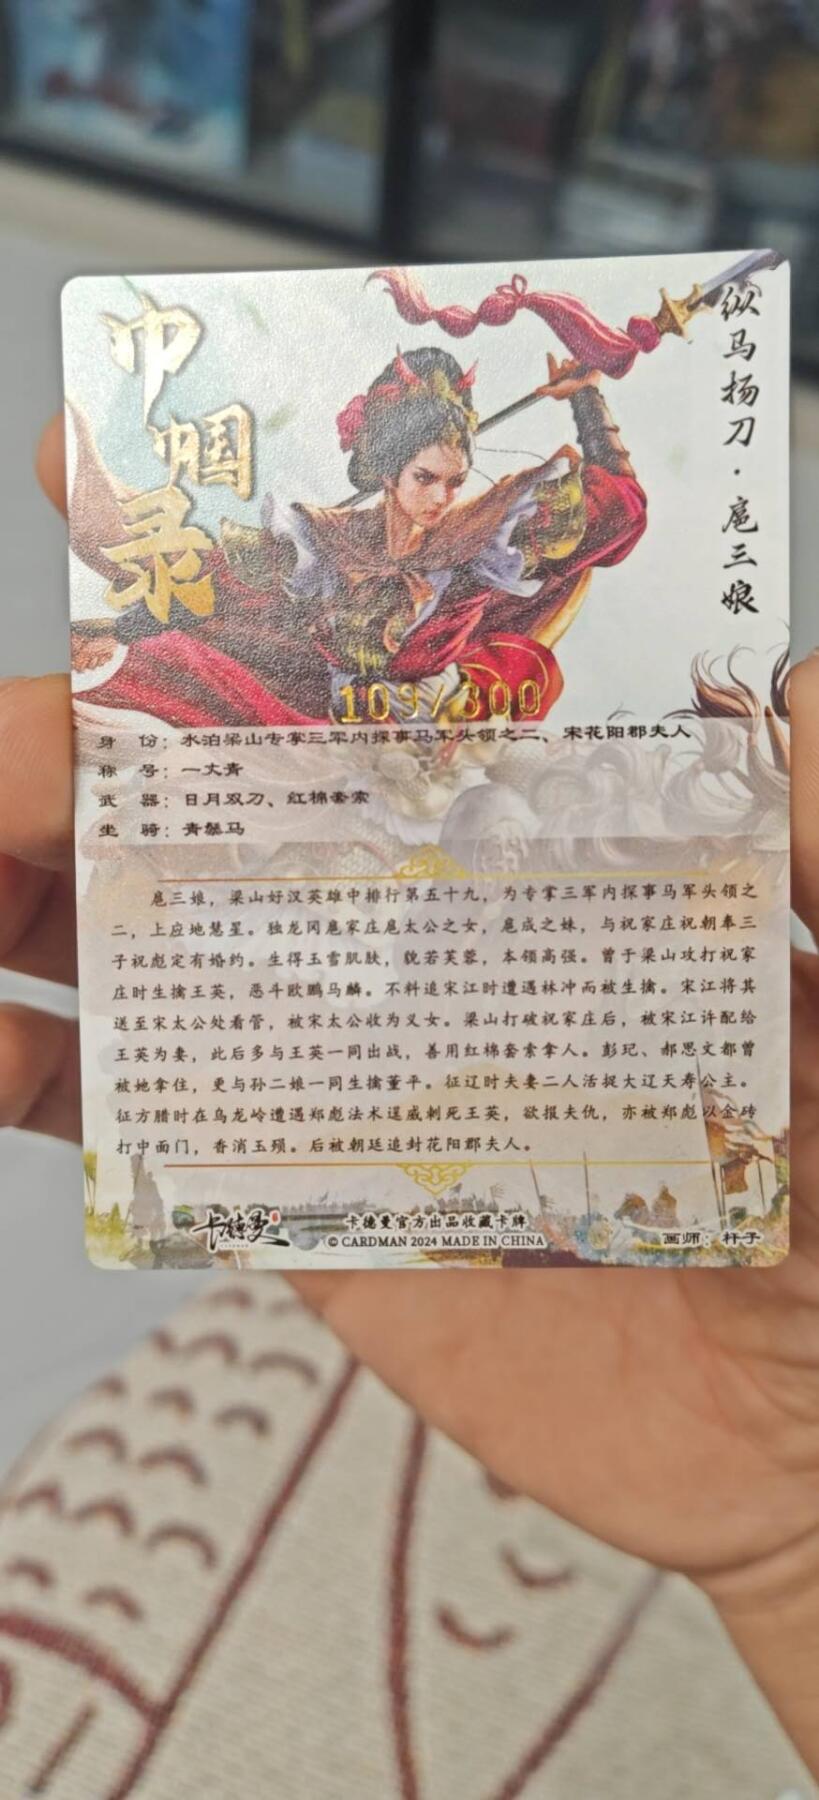 巾帼录
纵马扬刀·扈三娘
109/300
身 份：水泊梁山专掌三军内探事马军头领之二、宋花阳郡夫人
称 号：一丈青
武 器：日月双刀、红棉套索
坐 骑：青鬃马
扈三娘，梁山好汉英雄中排行第五十九，为专掌三军内探事马军头领之
二，上应地慧星。独龙冈扈家庄扈太公之女，扈成之妹，与祝家庄祝朝奉三
子祝彪定有婚约。生得玉雪肌肤，貌若芙蓉，本领高强。曾于梁山攻打祝家
庄时生擒王英，恶斗欧鹏马麟。不料追宋江时遭遇林冲而被生擒。宋江将其
送至宋太公处看管，被宋太公收为义女。梁山打破祝家庄后，被宋江许配给
王英为妻，此后多与王英一同出战，善用红棉套索拿人。彭玘、郝思文都曾
被她拿住，更与孙二娘一同生擒董平。征辽时夫妻二人活捉大辽天寿公主。
征方腊时在乌龙岭遭遇郑彪法术逞威刺死王英，欲报夫仇，亦被郑彪以金砖
打中面门，香消玉殒。后被朝廷追封花阳郡夫人。
卡德曼
卡德曼官方出品收藏卡牌
© CARDMAN 2024 MADE IN CHINA
画师：秆子